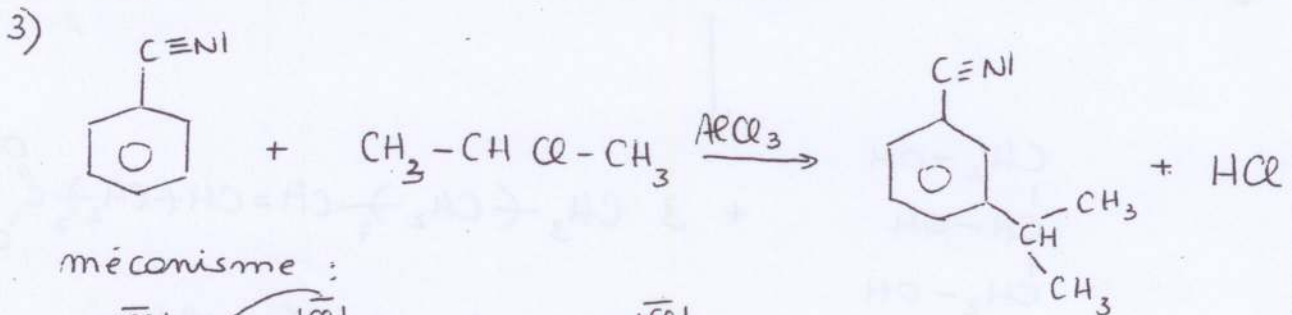 3)
C≡N|
+ CH3-CH Cl-CH3 AlCl3 →
C≡N|
CH
CH3
CH3
+ HCl
mécanisme :